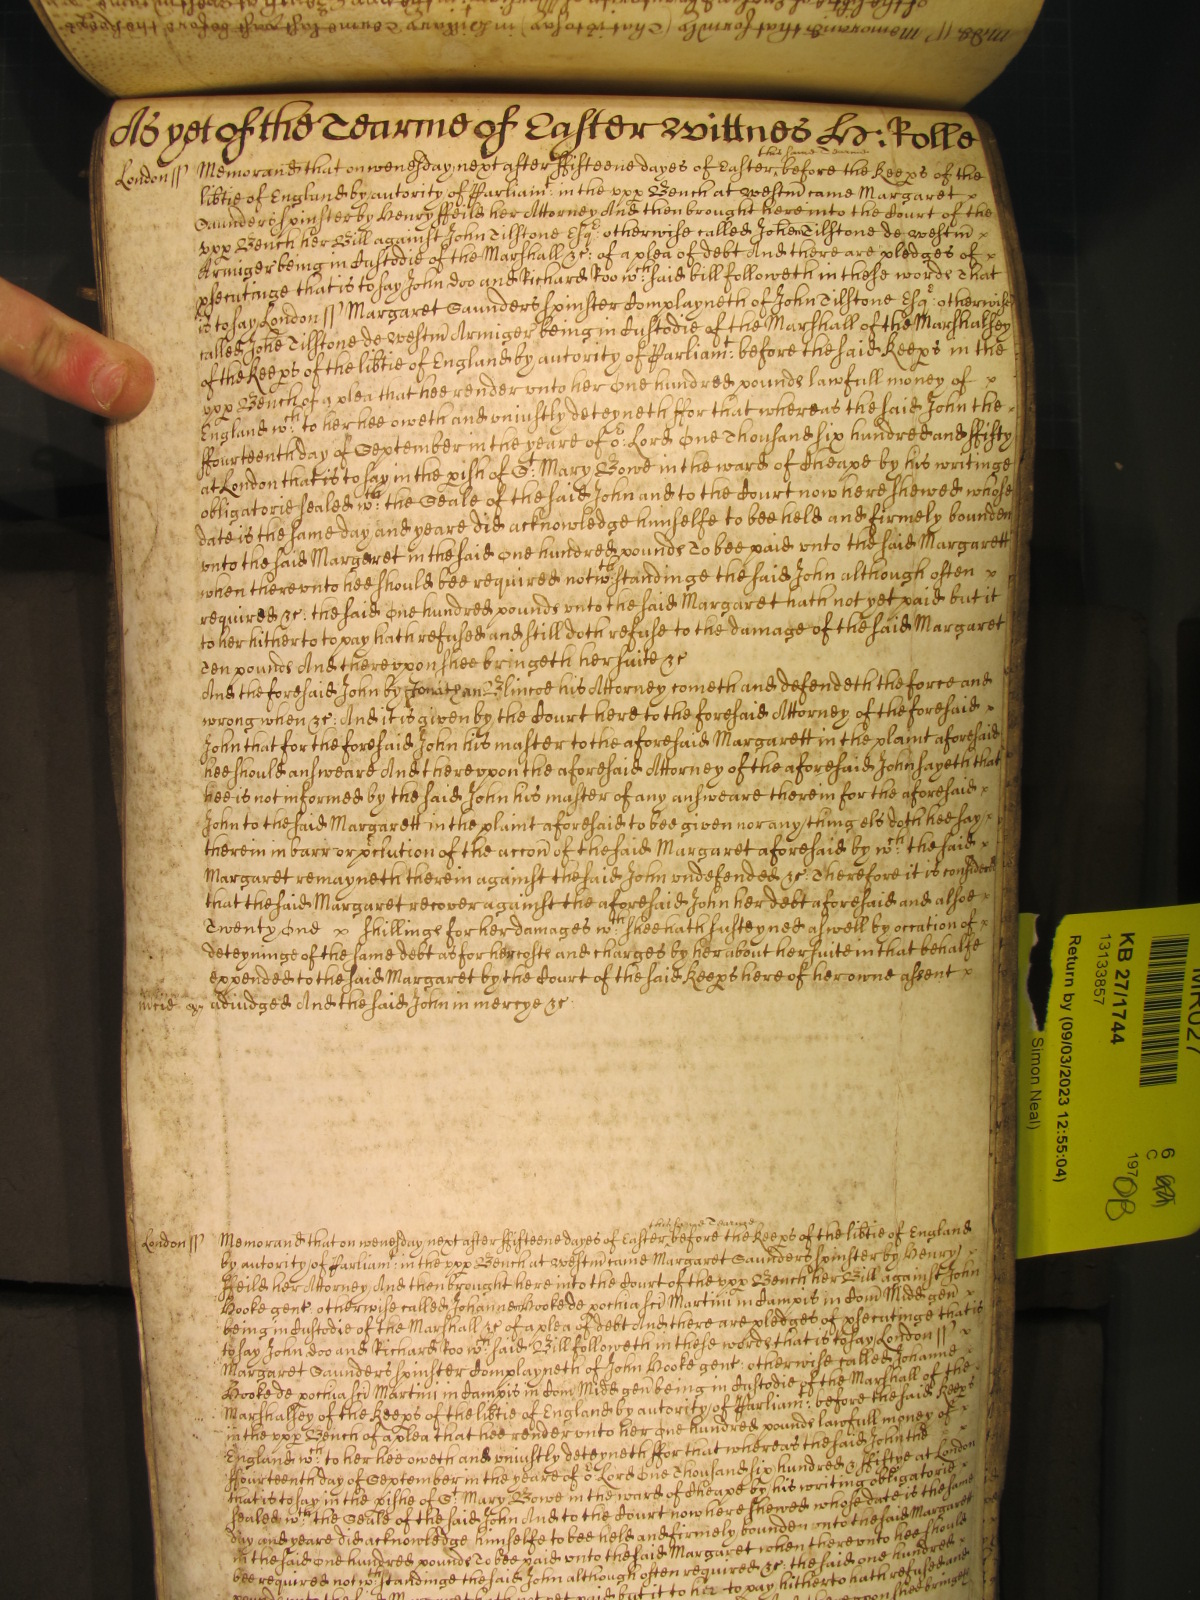 As yet of the Tearme of Easter Wittnes H: Rolle
this same Tearme
London ss Memorand that on wenesday next after ffifteene dayes of Easter before the Keeps of the
libtie of England by autority of Parliamt: in the vpp Bench at Westm came Margaret x
Saunders spinster by Henry ffeild her Attorney And then brought here into the Court of the
vpp Bench her Bill against John Tilstone Esqr: otherwise called John Tilstone de Westm x
Armiger being in Custodie of the Marshall &c: of a plea of debt And there are pledges of x
psecutinge that is to say John Doo and Richard Roo wch: said bill followeth in these words That
is to say London ss Margaret Saunders spinster Complayneth of John Tilstone Esqr: otherwise
called John Tilstone de Westm Armiger being in Custodie of the Marshall of the Marshalsey
of the Keeps of the libtie of England by autority of Parliamt: before the said Keeps in the
vpp Bench of a plea that hee render vnto her One hundred pounds lawfull money of x
England wch: to her hee oweth and vniustly deteyneth ffor that whereas the said John the
ffourteenth day of September in the yeare of or: Lord One Thousand six hundred and ffifty
at London that is to say in the pish of St: Mary Bowe in the ward of Cheape by his writinge
obligatorie sealed wth: the Seale of the said John and to the Court now here shewed whose
date is the same day and yeare did acknowledge himselfe to bee held and firmely bounden
vnto the said Margaret in the said One hundred pounds To bee paid vnto the said Margarett
when therevnto hee should bee required notwthstandinge the said John although often x
required &c: the said One hundred pounds vnto the said Margaret hath not yet paid but it
to her hitherto to pay hath refused and still doth refuse to the damage of the said Margaret
Ten pounds And therevpon shee bringeth her suite &c
And the foresaid John by Jonathan Blincoe his Attorney cometh and defendeth the force and
wrong when &c: And it is given by the Court here to the foresaid Attorney of the foresaid x
John that for the foresaid John his master to the aforesaid Margarett in the plaint aforesaid
hee should answeare And therevpon the aforesaid Attorney of the aforesaid John sayeth that
hee is not informed by the said John his master of any answeare therein for the aforesaid x
John to the said Margarett in the plaint aforesaid to bee given nor any thing els doth hee say
therein in barr or pclution of the accon of the said Margaret aforesaid by wch: the said x
Margaret remayneth therein against the said John vndefended &c: Therefore it is considered
that the said Margaret recover against the aforesaid John her debt aforesaid and alsoe x
Twenty One x shillings for her damages wch shee hath susteyned aswell by occation of x
deteyninge of the same debt as for her costs and charges by her about her suite in that behalfe
expended to the said Margaret by the Court of the said Keeps here of her owne assent x
adiudged And the said John in mercye &c:
this same Tearme
London ss Memorand that on wenesday next after ffifteene dayes of Easter before the Keeps of the libtie of England
by autority of Parliamt: in the vpp Bench at Westm came Margaret Saunders spinster by Henry
ffeild her Attorney And then brought here into the Court of the vpp Bench her Bill against John
Hooke gent: otherwise called Johanne Hooke de pochia sci Martini in Campis in Com Midd gen x
being in Custodie of the Marshall &c of a plea of debt And there are pledges of psecutinge that is
to say John Doo and Richard Roo wch: said Bill followeth in these words that is to say London ss
Margaret Saunders spinster Complayneth of John Hooke gent: otherwise called Johanne
Hooke de pochia sci Martini in Campis in Com Midd gen being in Custodie of the Marshall of the
Marshalsey of the Keeps of the libtie of England by autority of Parliamt: before the said Keeps
in the vpp Bench of a plea that hee render vnto her One hundred pounds lawfull money of
England wch: to her hee oweth and vniustly deteyneth ffor that whereas the said John the
ffourteenth day of September in the yeare of or Lord One Thousand six hundred & ffiftye at London
that is to say in the pishe of St: Mary Bowe in the ward of Cheape by his writing obligatorie
sealed wth: the Seale of the said John And to the Court now here shewed whose date is the same
day and yeare did acknowledge himselfe to bee held and firmely bounden vnto the said Margaret
in the said One hundred pounds To bee paid vnto the said Margaret when therevnto hee should
bee required notwthstandinge the said John although often required &c: the said One hundred
hath not yet paid but it to her to pay hitherto hath refused and
shee bringeth
MR027
KB 27/1744
13133857
Return by (09/03/2023 12:55:04)
Simon Neal)
6
C
197